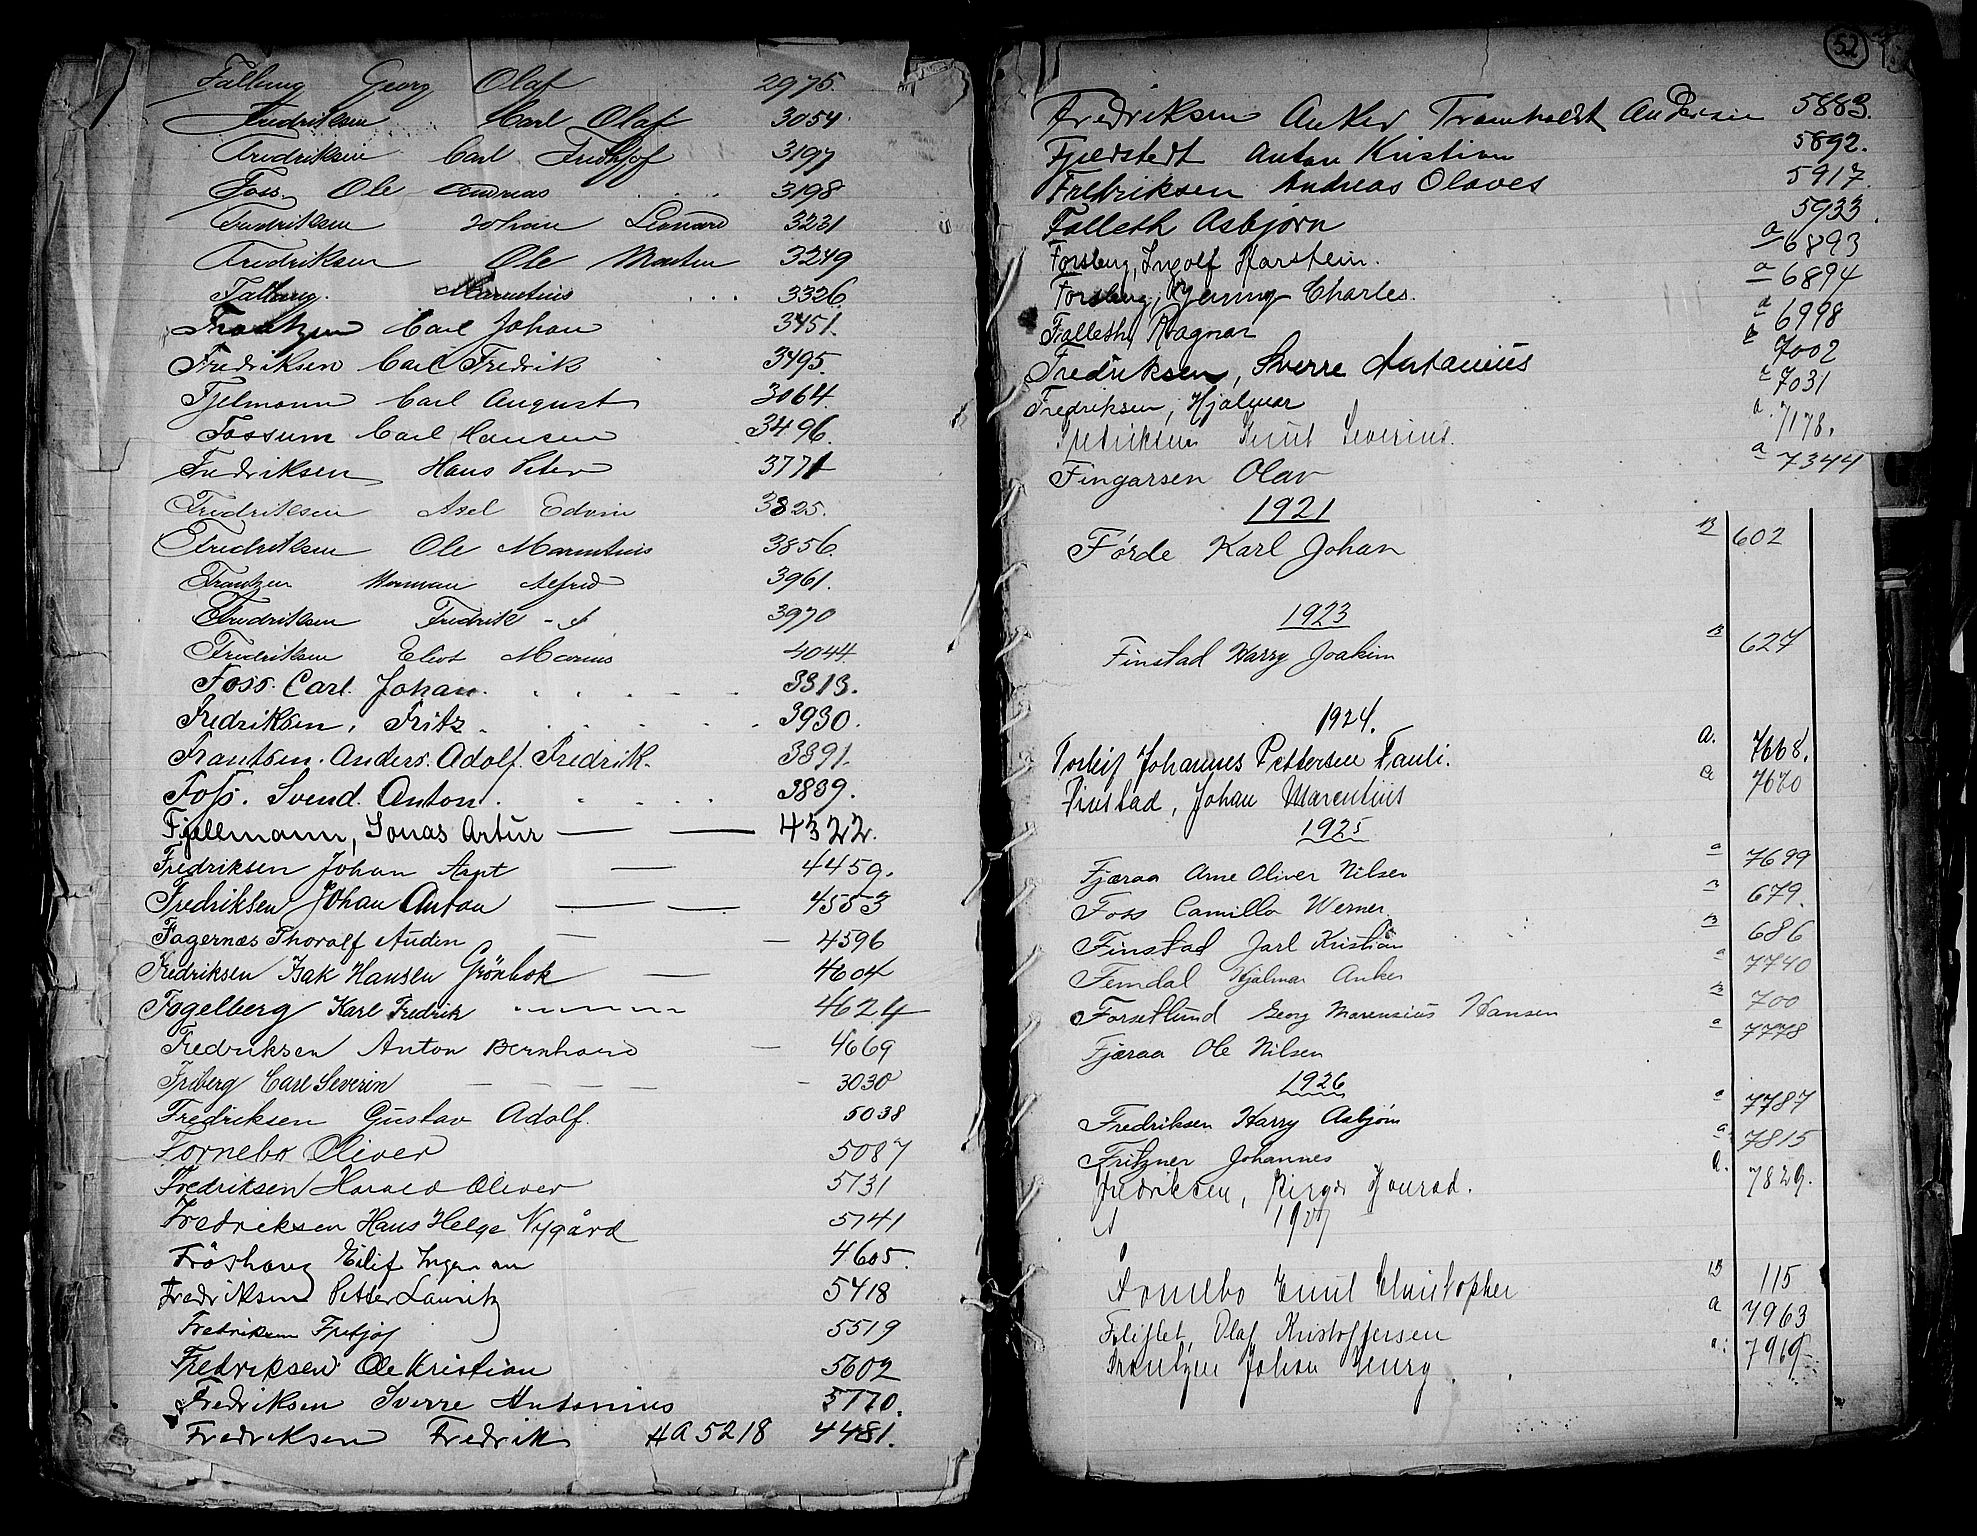 Falling Georg Olaf 2975.
Fredriksen Carl Olaf 3054.
Fredriksen Carl Fridtjof 3197
Foss. Ole Andreas 3198
Fredriksen Johan Leonard 3231
Fredriksen Ole Morten 3249
Falling. Marentius 3326.
Frantzen Carl Johan 3451.
Fredriksen Carl Fredrik 3495.
Fjelmann Carl August 3064.
Fossum Carl Hansen 3496.
Fredriksen Hans Peter 3771
Fredriksen Axel Edvin 3825.
Fredriksen Ole Marentius 3856.
Frantzen Herman Alfred 3961.
Fredriksen Fredrik - A 3970
Fredriksen Eliot Marius 4044.
Foss. Carl. Johan. 3313.
Fredriksen, Fritz. 3930.
Frantsen. Anders. Adolf. Fredrik. 3391.
Foss. Svend. Anton. 3839.
Fjellmann, Jonas Artur 4322.
Fredriksen Johan Arnt 4459.
Fredriksen Johan Anton 4553
Fagernæs Thoralf Audin 4596
Fredriksen Isak Hansen Grönbok 4604
Fogelberg Karl Fredrik 4624
Fredriksen Anton Bernhard 4669
Friberg Carl Severin 3030
Fredriksen Gustav Adolf. 5038
Fornebo Oliver 5087
Fredriksen Harald Oliver 5131
Fredriksen Hans Helge Nygård 5141
Fröshaug Eilif Ingeman 4605.
Fredriksen Petter Lauritz 5418
Fredriksen Fritjof 5519
Fredriksen Ole Kristian 5602
Fredriksen Sverre Antonius 5770.
Fredriksen Fredrik HA 5218 4481.
52
Fredriksen Anker Tramholdt Andersen 5883.
Fjeldstedt Anton Kristian 5892.
Fredriksen Andreas Olaves 5917
Falleth Asbjørn 5933.
Forsberg, Ingolf Harstein. a 6893
Forsberg, Henning Charles. a 6894
Falleth, Ragnar a 6998
Fredriksen, Sverre Antonius a 7002
Fredriksen, Hjalmar a 7031
Fredriksen Knut Severius. a. 7178.
Fingarsen Olav a 7344
1921
Førde Karl Johan B 602
1923
Finstad Harry Joakim B 627
1924.
Johannes Pettersen Fauli. a. 7668.
Finstad, Johan Marentius a 7670
1925
Fjæraa Arne Oliver Nilsen a 7699
Foss Camillo Werner B 679.
Finstad Jarl Kristian B 686
Femdal Hjalmar Anker a 7740
Forsetlund Georg Marensius Hansen B 700
Fjæraa Ole Nilsen a 7778
1926
Fredriksen Harry Asbjørn a 7787
Fritzner Johannes a 7815
Fredriksen, Birger Konrad. a. 7829.
1927
Fornebo Emil Christopher B 115
Fliflet, Olaf Kristoffersen a 7963
Frantzen Johan Henry. a: 7969